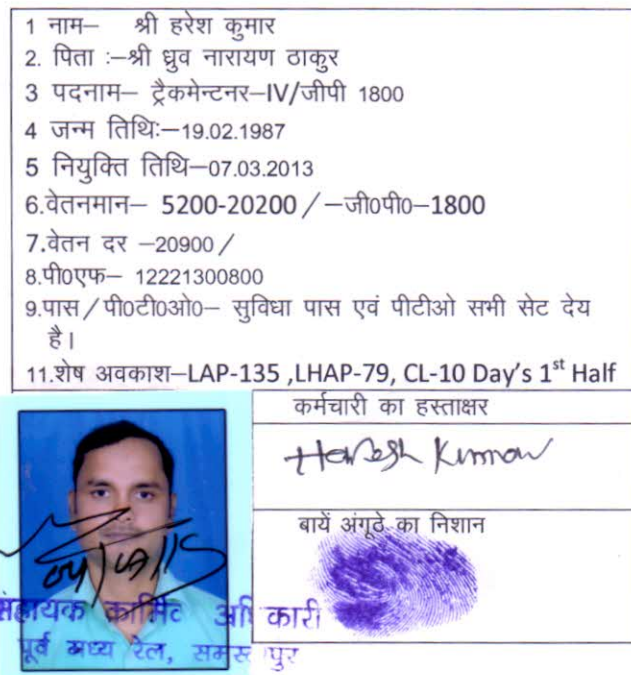 1 नाम– श्री हरेश कुमार
2. पिता :–श्री ध्रुव नारायण ठाकुर
3 पदनाम– ट्रैकमेन्टनर–IV/जीपी 1800
4 जन्म तिथिः–19.02.1987
5 नियुक्ति तिथि–07.03.2013
6.वेतनमान– 5200-20200 / –जी0पी0–1800
7.वेतन दर –20900 /
8.पी0एफ– 12221300800
9.पास / पी0टी0ओ0– सुविधा पास एवं पीटीओ सभी सेट देय
है।
11.शेष अवकाश–LAP-135 ,LHAP-79, CL-10 Day's 1st Half
कर्मचारी का हस्ताक्षर
Haresh Kumar
बायें अंगूठे का निशान
सहायक कार्मिक अधिकारी
पूर्व मध्य रेल, समस्तीपुर